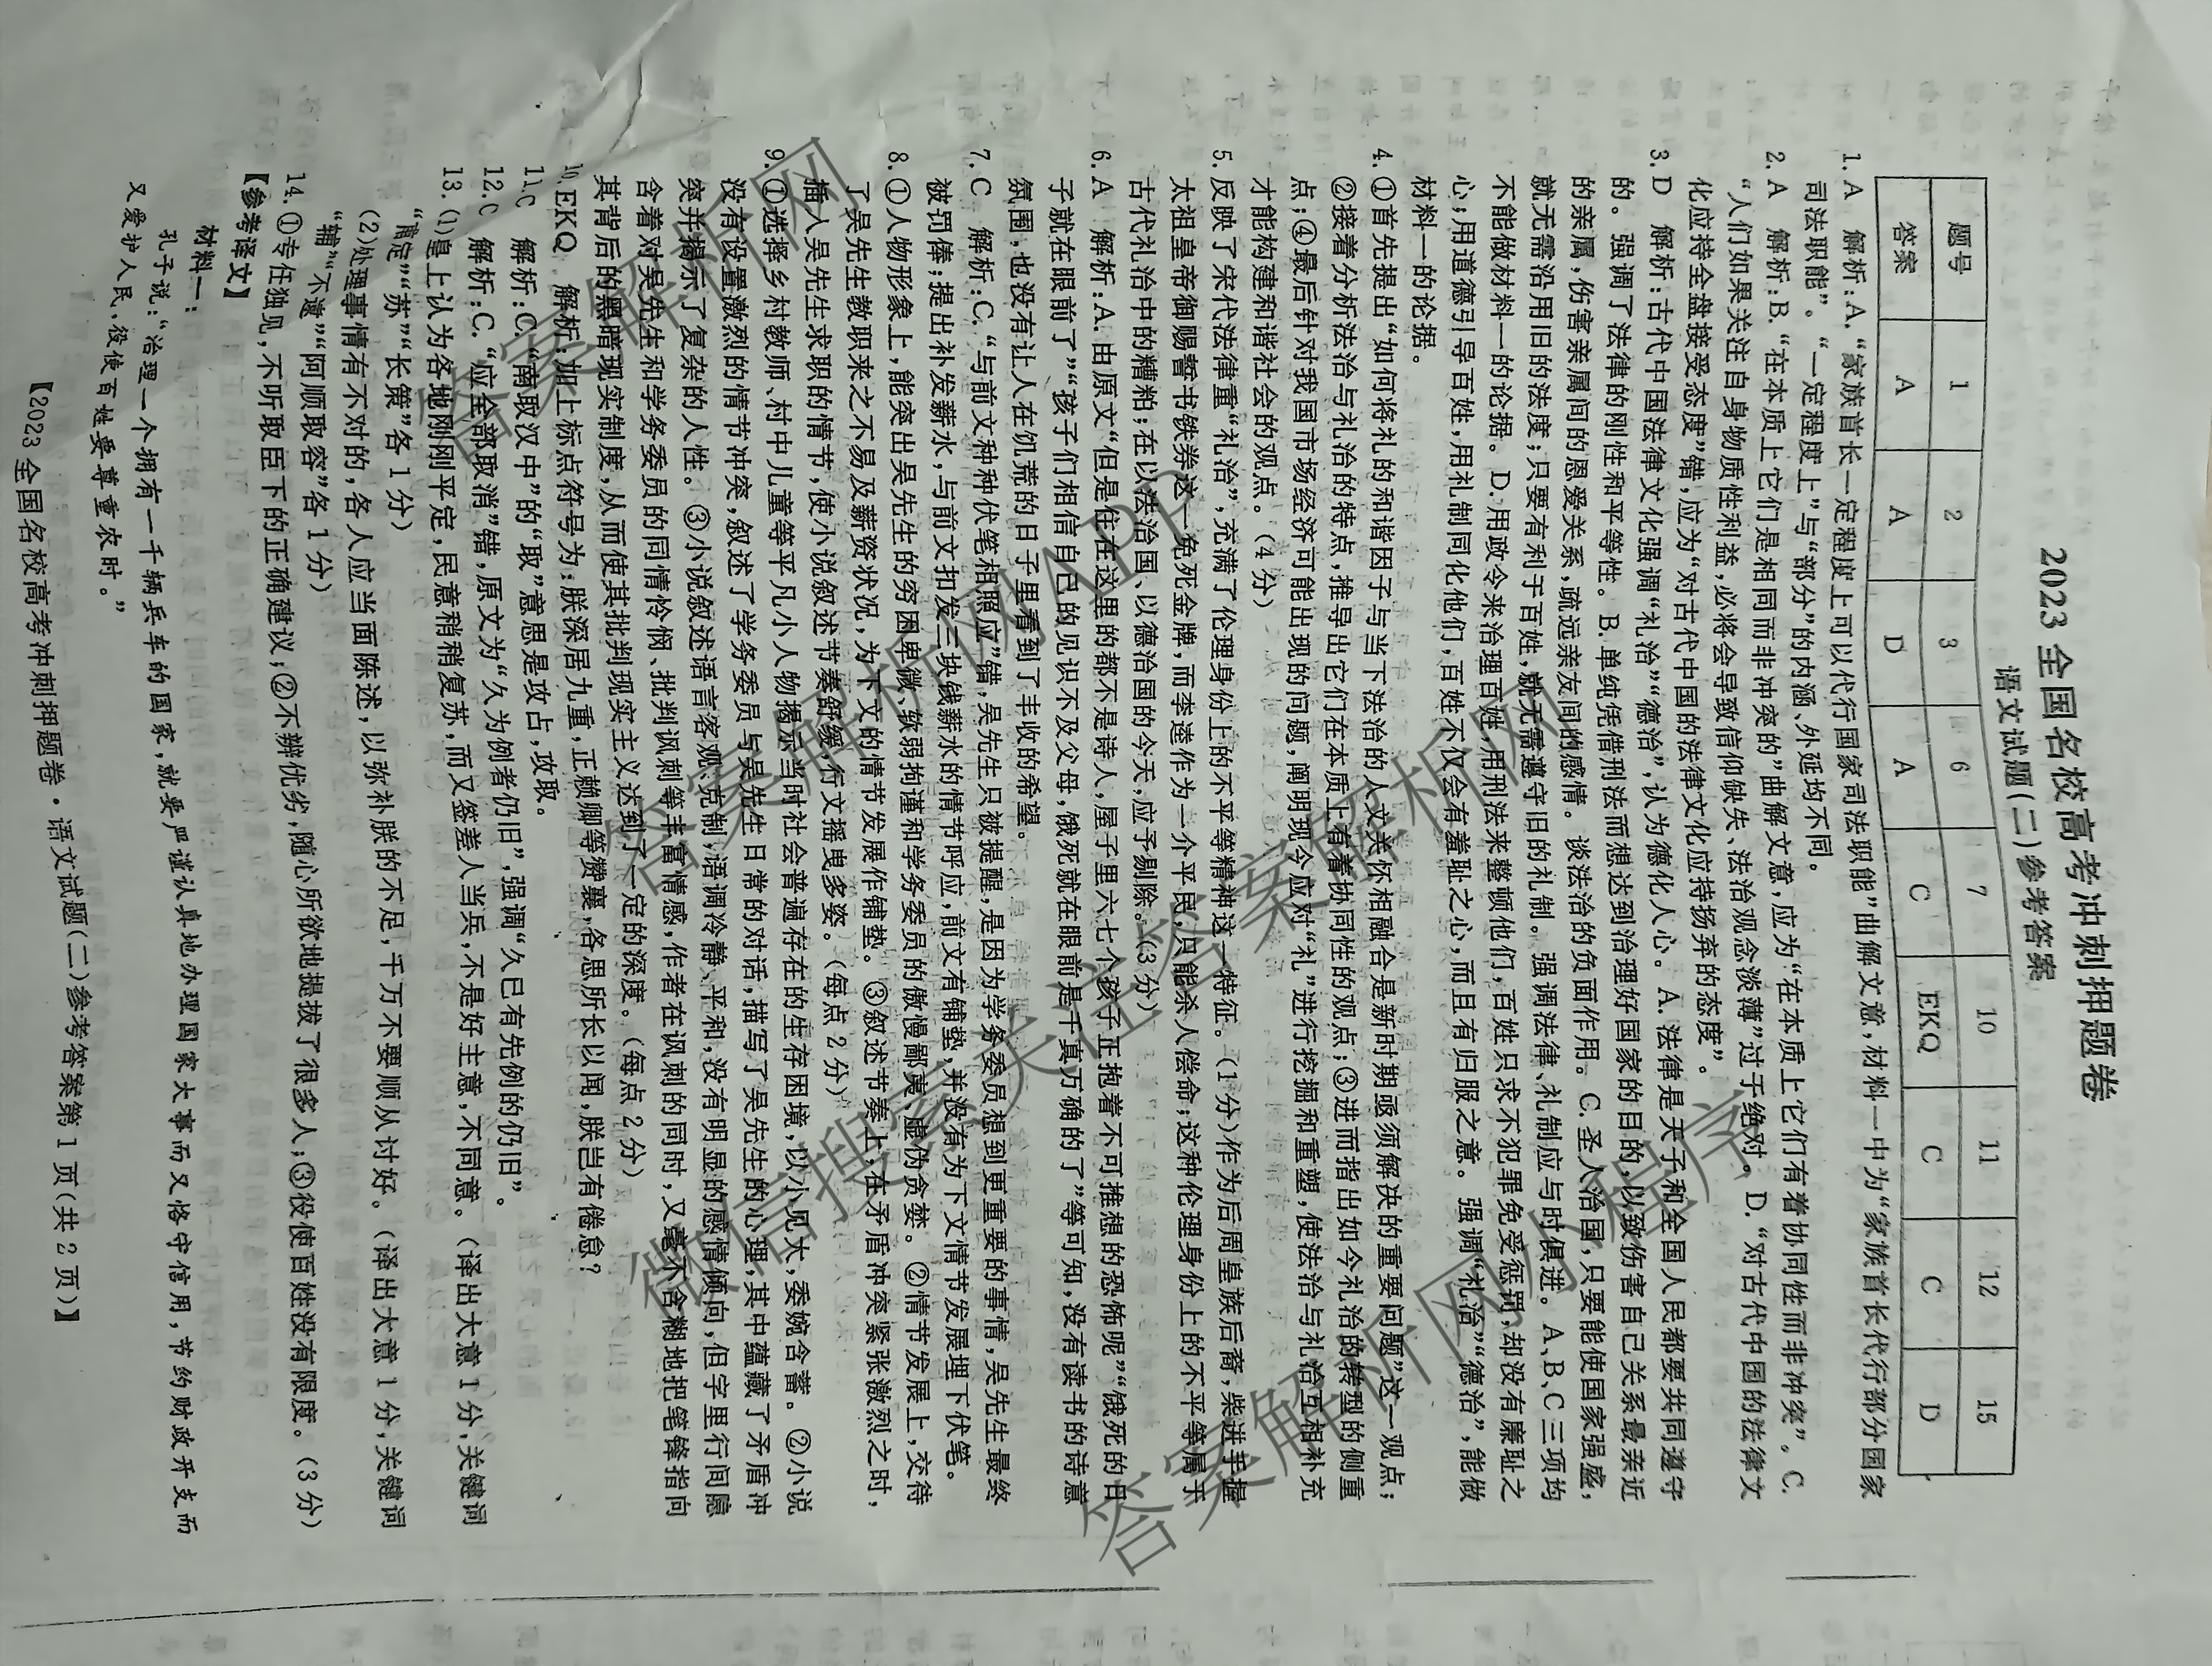 2023 全国名校高考冲刺押题卷
语文试题(二)参考答案
题号 1 2 3 6 7 10 11 12 15
答案 A A D A C EKQ C C D
1. A 解析:A.“家族首长一定程度上可以代行国家司法职能”曲解文意,材料一中为“家族首长代行部分国家
司法职能”。“一定程度上”与“部分”的内涵、外延均不同。
2. A 解析:B.“在本质上它们是相同而非冲突的”曲解文意,应为“在本质上它们有着协同性而非冲突”。C.
“人们如果关注自身物质性利益,必将会导致信仰缺失、法治观念淡薄”过于绝对。D.“对古代中国的法律文
化应持全盘接受态度”错,应为“对古代中国的法律文化应持扬弃的态度”。
3. D 解析:古代中国法律文化强调“礼治”“德治”,认为德化人心。A.法律是天子和全国人民都要共同遵守
的。强调了法律的刚性和平等性。B.单纯凭借刑法而想达到治理好国家的目的,以致伤害自己关系最亲近
的亲属,伤害亲属间的恩爱关系,疏远亲友间的感情。谈法治的负面作用。C.圣人治国,只要能使国家强盛,
就无需沿用旧的法度;只要有利于百姓,就无需遵守旧的礼制。强调法律、礼制应与时俱进。A、B、C三项均
不能做材料一的论据。D.用政令来治理百姓,用刑法来整顿他们,百姓只求不犯罪免受惩罚,却没有廉耻之
心;用道德引导百姓,用礼制同化他们,百姓不仅会有羞耻之心,而且有归服之意。强调“礼治”“德治”,能做
材料一的论据。
4. ①首先提出“如何将礼的和谐因子与当下法治的人文关怀相融合是新时期亟须解决的重要问题”这一观点;
②接着分析法治与礼治的特点,推导出它们在本质上有着协同性的观点;③进而指出如今礼治的转型的侧重
点;④最后针对我国市场经济可能出现的问题,阐明现今应对“礼”进行挖掘和重塑,使法治与礼治互相补充
才能构建和谐社会的观点。(4 分)
5. 反映了宋代法律重“礼治”,充满了伦理身份上的不平等精神这一特征。(1 分)作为后周皇族后裔,柴进手握
太祖皇帝御赐誓书铁券这一免死金牌,而李逵作为一介平民,只能杀人偿命;这种伦理身份上的不平等属于
古代礼治中的糟粕;在以法治国、以德治国的今天,应予剔除。(3 分)
6. A 解析:A.由原文“但是住在这里的都不是诗人,屋子里六七个孩子正抱着不可推想的恐怖呢”“饿死的日
子就在眼前了”“孩子们相信自己的见识不及父母,饿死就在眼前是千真万确的了”等可知,没有读书的诗意
氛围,也没有让人在饥荒的日子里看到了丰收的希望。
7. C 解析:C.“与前文种种伏笔相照应”错,吴先生只被提醒,是因为学务委员想到更重要的事情,吴先生最终
被罚俸;提出补发薪水,与前文扣发三块钱薪水的情节呼应,前文有铺垫,并没有为下文情节发展埋下伏笔。
8. ①人物形象上,能突出吴先生的穷困卑微、软弱拘谨和学务委员的傲慢鄙夷、虚伪贪婪。②情节发展上,交待
了吴先生教职来之不易及薪资状况,为下文的情节发展作铺垫。③叙述节奏上,在矛盾冲突紧张激烈之时,
插入吴先生求职的情节,使小说叙述节奏舒缓,行文摇曳多姿。(每点 2 分)
9. ①选择乡村教师、村中儿童等平凡小人物揭示当时社会普遍存在的生存困境,以小见大,委婉含蓄。②小说
没有设置激烈的情节冲突,叙述了学务委员与吴先生日常的对话,描写了吴先生的心理,其中蕴藏了矛盾冲
突并揭示了复杂的人性。③小说叙述语言客观、克制,语调冷静、平和,没有明显的感情倾向,但字里行间隐
含着对吴先生和学务委员的同情怜悯、批判讽刺等丰富情感,作者在讽刺的同时,又毫不含糊地把笔锋指向
其背后的黑暗现实制度,从而使其批判现实主义达到了一定的深度。(每点 2 分)
10. EKQ 解析:加上标点符号为:朕深居九重,正赖卿等赞襄,各思所长以闻,朕岂有倦怠?
11. C 解析:C.“南取汉中”的“取”意思是攻占,攻取。
12. C 解析:C.“应全部取消”错,原文为“久为例者仍旧”,强调“久已有先例的仍旧”。
13. (1)皇上认为各地刚刚平定,民意稍稍复苏,而又签差人当兵,不是好主意,不同意。(译出大意 1 分,关键词
“甫定”“苏”“长策”各 1 分)
(2)处理事情有不对的,各人应当面陈述,以弥补朕的不足,千万不要顺从讨好。(译出大意 1 分,关键词
“辅”“不逮”“阿顺取容”各 1 分)
14. ①专任独见,不听取臣下的正确建议;②不辨优劣,随心所欲地提拔了很多人;③役使百姓没有限度。(3 分)
【参考译文】
材料一:
孔子说:“治理一个拥有一千辆兵车的国家,就要严谨认真地办理国家大事而又恪守信用,节约财政开支而
又爱护人民,役使百姓要尊重农时。”
【2023 全国名校高考冲刺押题卷·语文试题(二)参考答案第 1 页(共 2 页)】
答案解析网
答案解析网APP
微信搜索关注答案解析网
答案解析网小程序